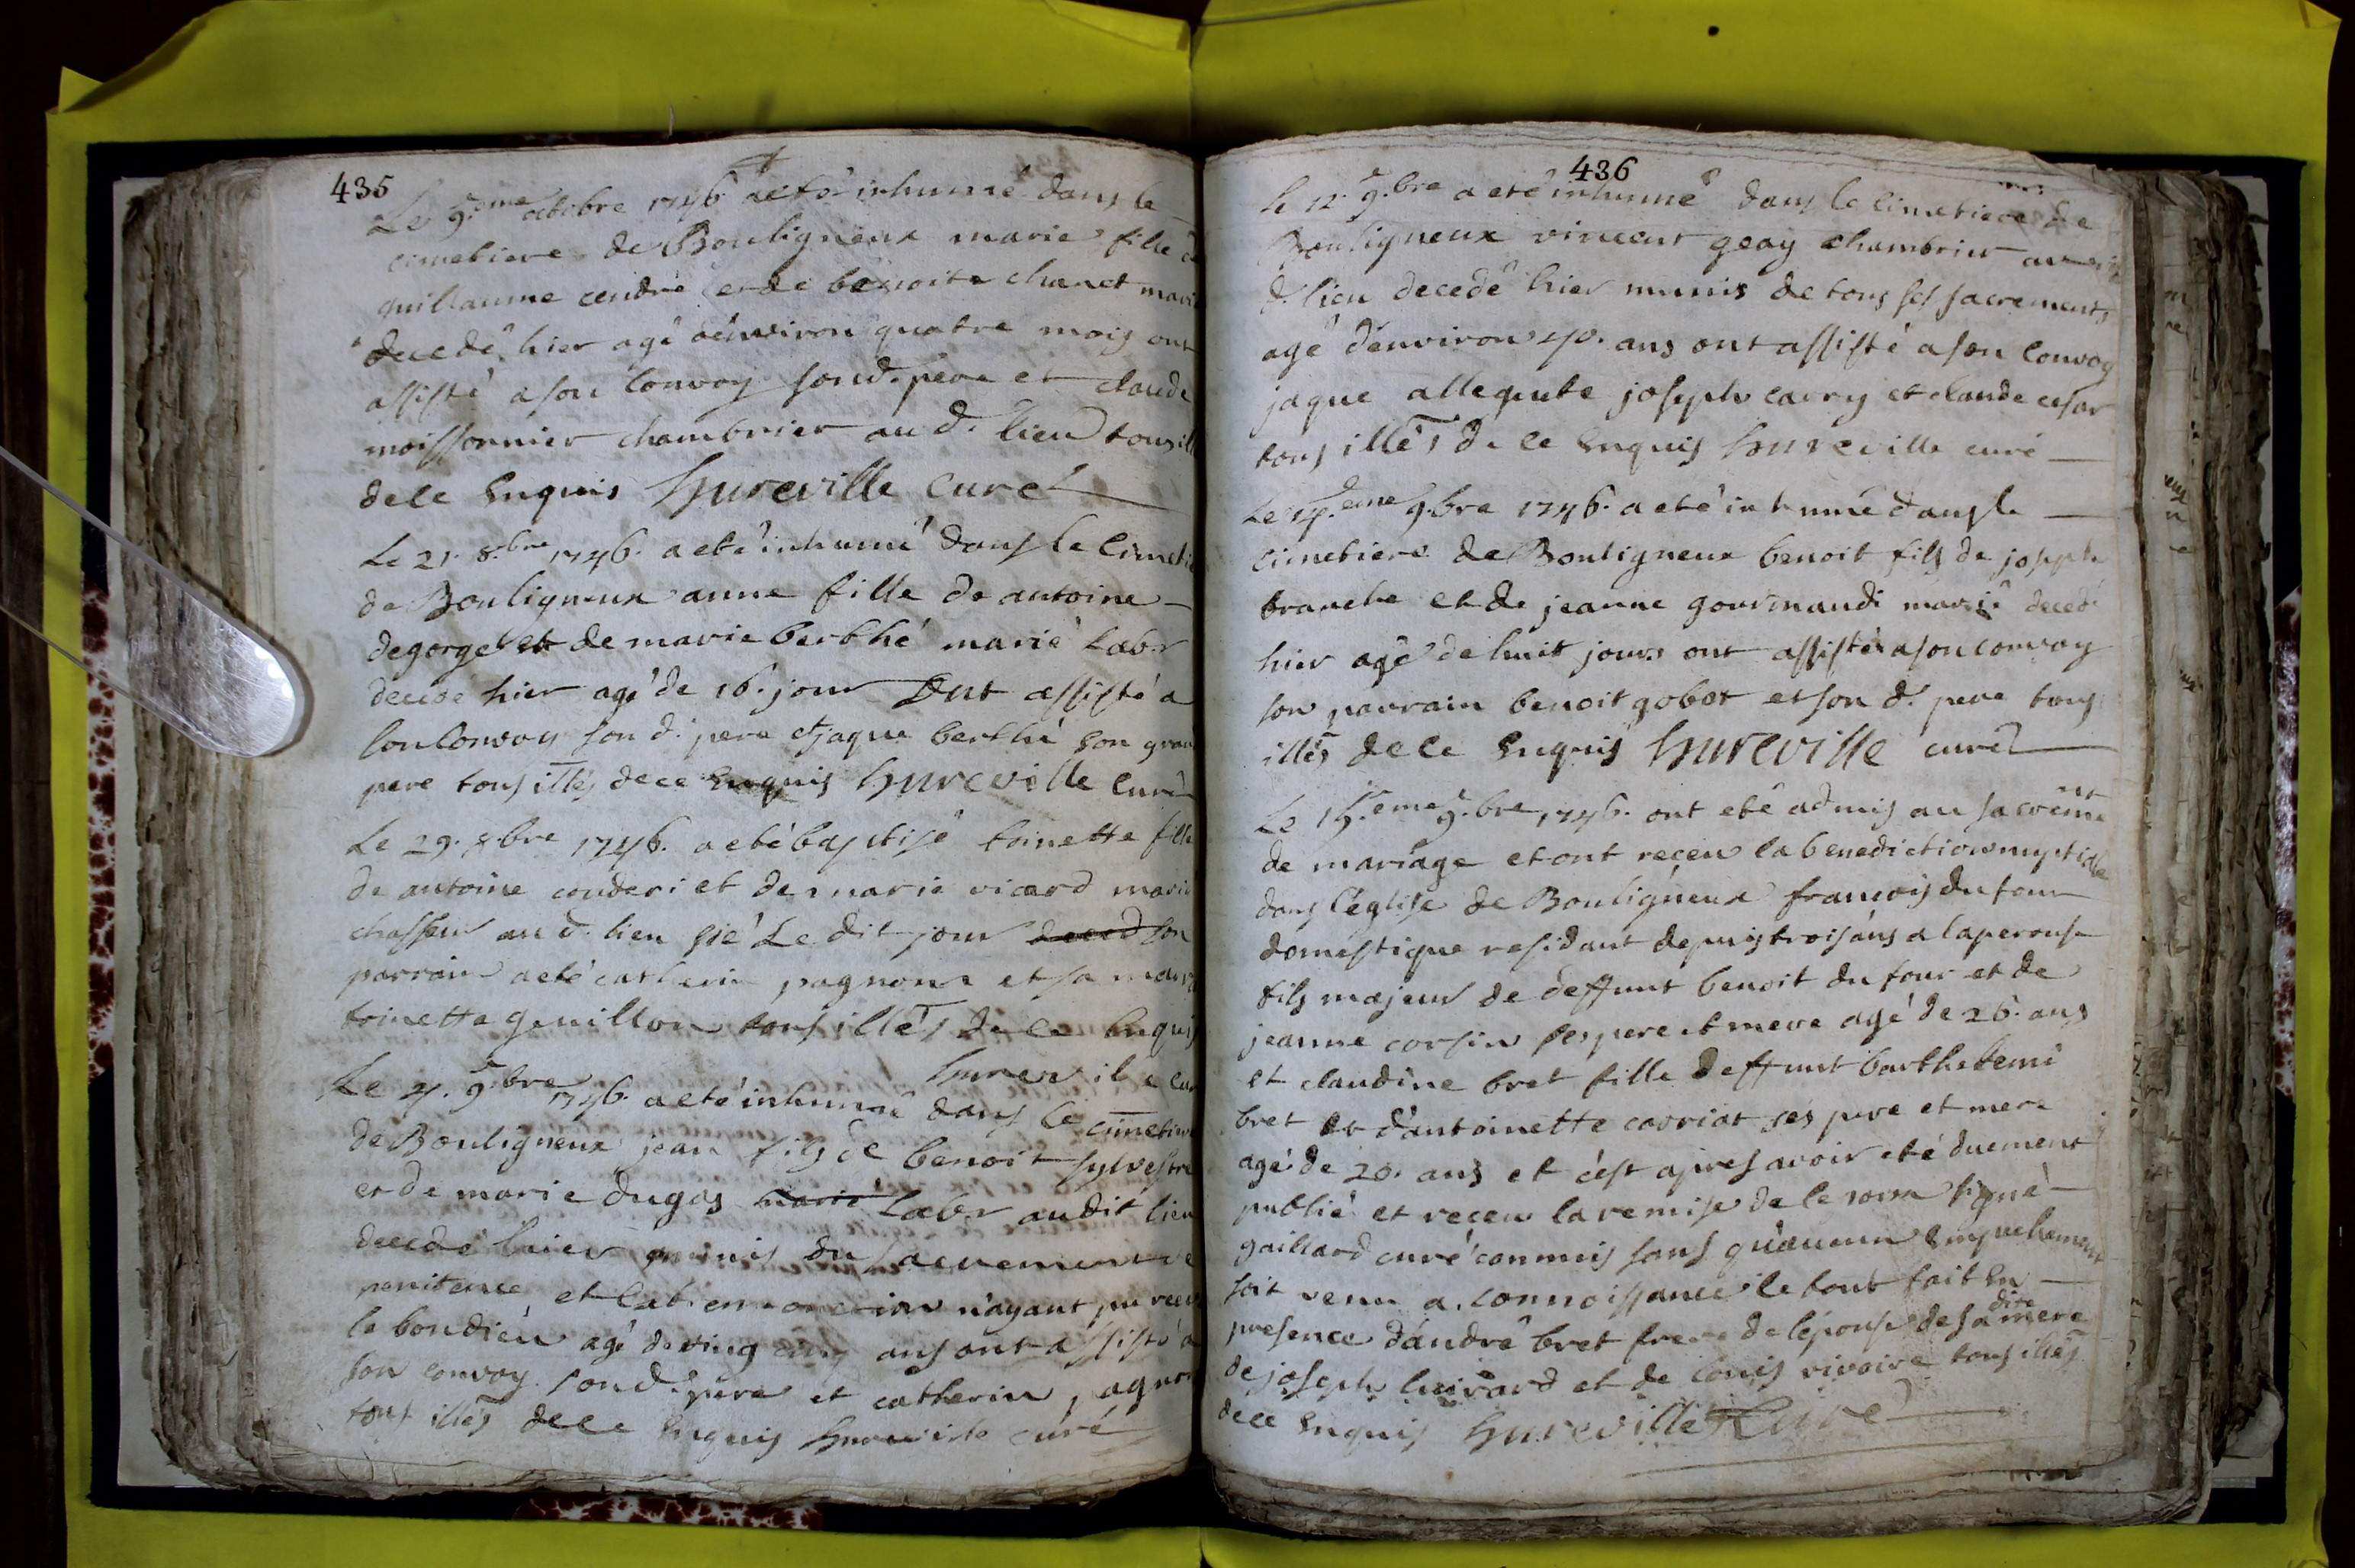 435
Le 9.me octobre 1746 a eté inhumé dans le
cimetiere de Bouligneux marie fille
guillaume cendre et de benoite chanet
decedé hier agé d'environ quatre mois ont
assisté a son convoy son d. pere et claude
moissonnier chambrier au d. lieu tous
de ce enquis hureville curé
Le 21. 8.bre 1746. a eté inhumé dans le
de Bouligneux anne fille de antoine
degorge et de marie berthé marié labr
decedé hier agé de 16. jour ont assisté a
son convoy son d. pere et jaque berthé son
pere tous illés de ce enquis hureville curé
Le 29. 8.bre 1746. a eté baptisé toinette fille
de antoine couderi et de marie vicard
chasseur au d. lieu né Le dit jour son
parrain a eté catherin pagnon et sa
toinette genillon tous illés de ce enquis
Le 4. 9.bre 1746. a eté inhumé dans le
de Bouligneux jean fils de benoit sylvestre
et de marie dugas marié labr audit lieu
decedé hier munis du sacrement de
penitence et n'ayant pu
le bondieu agé de ving cinq ans ont assisté a
son convoy son d. pere et catherin pagnon
tous illés de ce enquis hureville curé
436
le 12. 9.bre a eté inhumé dans le cimetiere de
Bouligneux vincent geay chambrier au
d. lieu decedé hier munis de tous ses sacrements
agé d'environ 40. ans ont assisté a son convoy
jaque joseph carry et claude cesar
tous illés de ce enquis hureville curé
Le 14.eme 9.bre 1746. a eté inhumé dans le
cimetiere de Bouligneux benoit fils de joseph
branche et de jeanne gourmandi marié decedé
hier agé de huit jours ont assisté a son convoy
son parrain benoit gobet et son d. pere tous
illés de ce enquis hureville curé
Le 15.eme 9.bre 1746. ont eté admis au sacrement
de mariage et ont receu la benediction nuptiale
dans l'église de Bouligneux françois du four
domestique residant depuis trois ans a laperouse
fils majeur de deffunt benoit du four et de
jeanne corsin ses pere et mere agé de 26. ans
et claudine bret fille deffunt barthelemi
bret et d'antoinette carriat ses pere et mere
agé de 20. ans et c'est apres avoir eté duement
publié et receu la remise de ce signé
gaillard curé commis sans qu'aucun empechement
soit venu a connoissance le tout fait en
presence d'andré bret frere de l'épouse de sa dite mere
de joseph et de louis rivoire tous illés
de ce enquis hureville curé